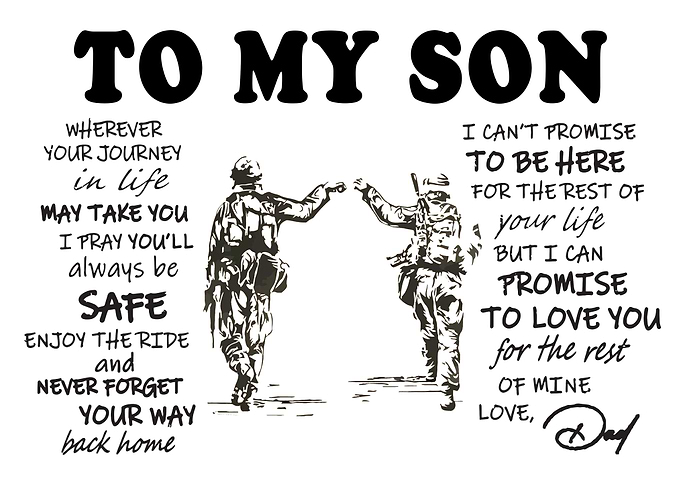 TO MY SON
WHEREVER
YOUR JOURNEY
in life
MAY TAKE YOU
I PRAY YOU'LL
always be
SAFE
ENJOY THE RIDE
and
NEVER FORGET
YOUR WAY
back home
I CAN'T PROMISE
TO BE HERE
FOR THE REST OF
your life
BUT I CAN
PROMISE
TO LOVE YOU
for the rest
OF MINE
LOVE, Dad